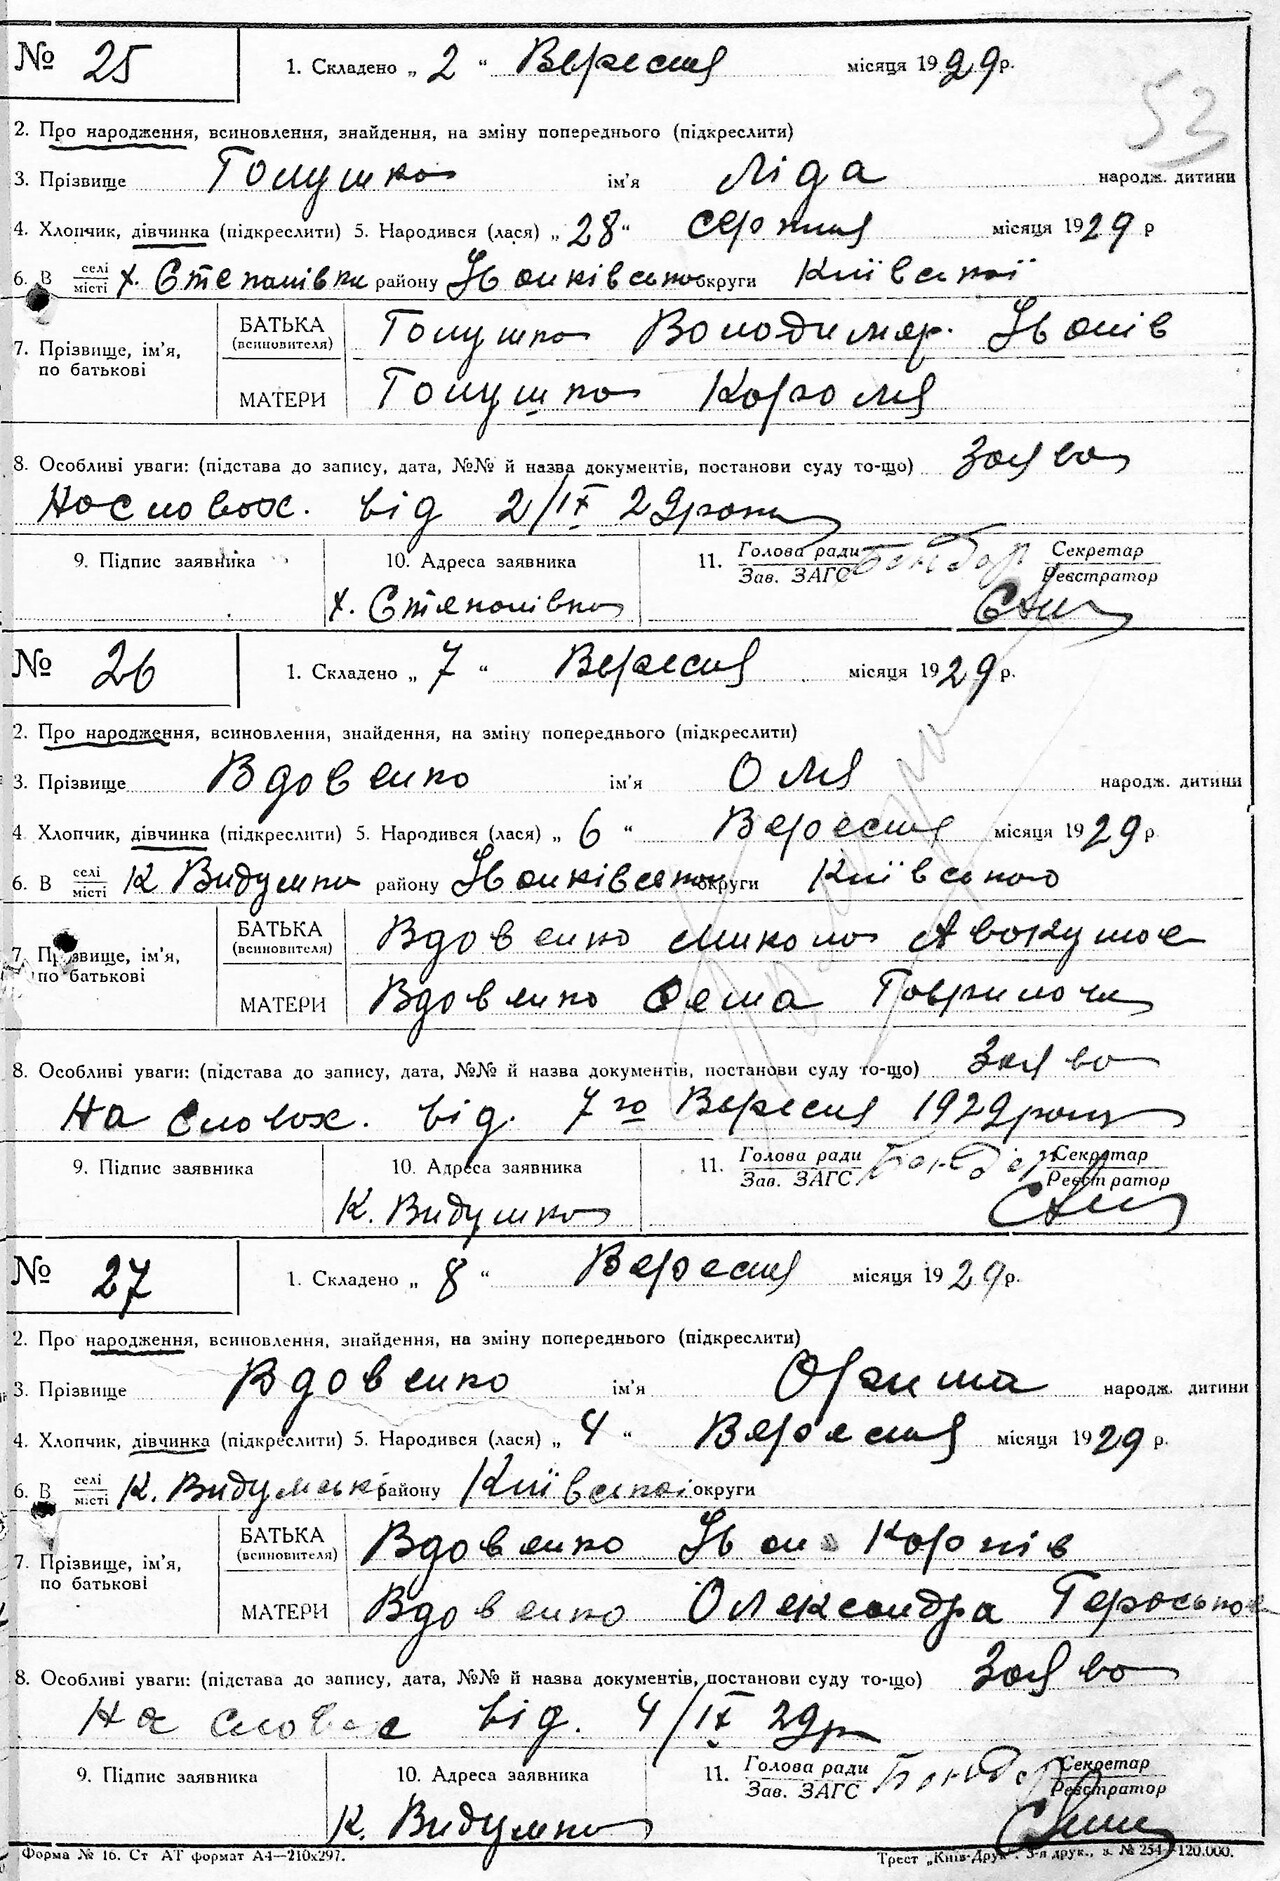 № 25 1. Складено „ 2 " Вересня місяця 1929 р.
53
2. Про народження, всиновлення, знайдення, на зміну попереднього (підкреслити)
3. Прізвище Голушко ім'я Ліда народж. дитини
4. Хлопчик, дівчинка (підкреслити) 5. Народився (лася) „ 28 " серпня місяця 1929 р
6. В селі/місті х. Степанівка району Іванківського округи Київської
7. Прізвище, ім'я, по батькові
БАТЬКА (всиновителя) Голушко Володимяр. Іванів
МАТЕРИ Голушко Короля
8. Особливі уваги: (підстава до запису, дата, №№ й назва документів, постанови суду то-що) Заява
На словах. від 2/IX 29 року
9. Підпис заявника 10. Адреса заявника 11. Голова ради/Зав. ЗАГС Бондар Секретар/Реєстратор
х. Степанівка
№ 26 1. Складено „ 7 " Вересня місяця 1929 р.
2. Про народження, всиновлення, знайдення, на зміну попереднього (підкреслити)
3. Прізвище Вдовенко ім'я Оля народж. дитини
4. Хлопчик, дівчинка (підкреслити) 5. Народився (лася) „ 6 " Вересня місяця 1929 р.
6. В селі/місті К Видумка району Іванківського округи Київського
7. Прізвище, ім'я, по батькові
БАТЬКА (всиновителя) Вдовенко Микола
МАТЕРИ Вдовенко
8. Особливі уваги: (підстава до запису, дата, №№ й назва документів, постанови суду то-що) Заява
На словах. від. 7го Вересня 1929 року
9. Підпис заявника 10. Адреса заявника 11. Голова ради/Зав. ЗАГС Бондар Секретар/Реєстратор
К. Видумка
№ 27 1. Складено „ 8 " Вересня місяця 1929 р.
2. Про народження, всиновлення, знайдення, на зміну попереднього (підкреслити)
3. Прізвище Вдовенко ім'я Орина народж. дитини
4. Хлопчик, дівчинка (підкреслити) 5. Народився (лася) „ 4 " Вересня місяця 1929 р.
6. В селі/місті К. Видумські району Київської округи
7. Прізвище, ім'я, по батькові
БАТЬКА (всиновителя) Вдовенко Іван Карпів
МАТЕРИ Вдовенко Олександра
8. Особливі уваги: (підстава до запису, дата, №№ й назва документів, постанови суду то-що) Заява
На словах від. 4/IX 29р
9. Підпис заявника 10. Адреса заявника 11. Голова ради/Зав. ЗАГС Бондар Секретар/Реєстратор
К. Видумка
Форма № 16. Ст АТ формат А4—210x297. Трест „Київ-Друк". 3-я друк., з. № 254—120.000.